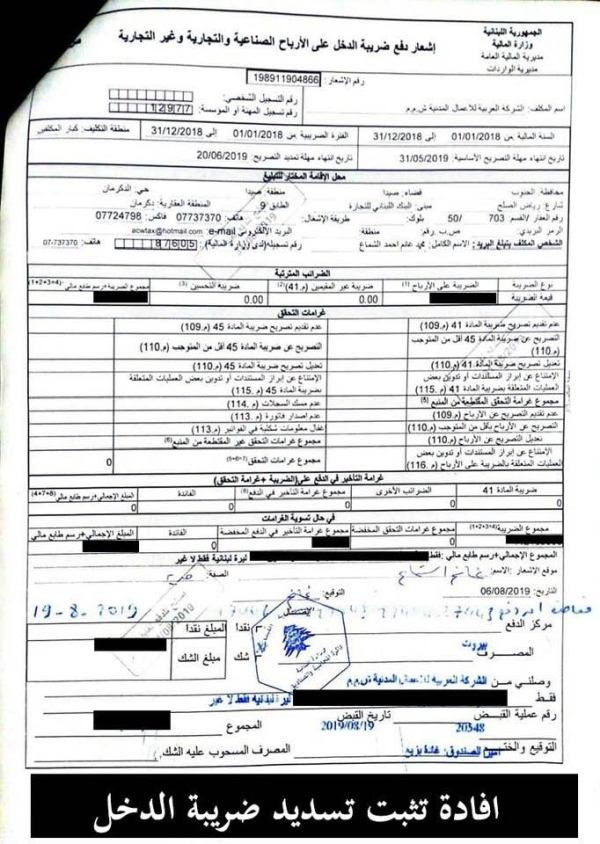 الجمهورية اللبنانية
وزارة المالية
مديرية المالية العامة
مديرية الواردات
إشعار دفع ضريبة الدخل على الأرباح الصناعية والتجارية وغير التجارية
رقم الإشعار: 198911904866
اسم المكلف: الشركة العربية للاعمال المدنية ش.م.م
رقم التسجيل الشخصي:
رقم تسجيل المهنة أو المؤسسة: 12977
السنة المالية من 01/01/2018 إلى 31/12/2018
الفترة الضريبية من 01/01/2018 إلى 31/12/2018
منطقة التكليف: كبار المكلفين
تاريخ انتهاء مهلة التصريح الأساسية: 31/05/2019
تاريخ انتهاء مهلة تمديد التصريح: 20/06/2019
محل الإقامة المختار للتبليغ
محافظة: الجنوب قضاء: صيدا منطقة: صيدا حي: الدكرمان
شارع: رياض الصلح مبنى: البنك اللبناني للتجارة الطابق 9 المنطقة العقارية: دكرمان
رقم العقار /القسم: 703 /50 بلوك: طريقة الإشغال: هاتف: 07737370 فاكس: 07724798
الرمز البريدي: ص.ب رقم: منطقة: البريد الالكتروني e-mail: acwtax@hotmail.com
الشخص المكلف بتبلغ البريد: الاسم الكامل: محمد غانم احمد الشماع رقم تسجيله (لدى وزارة المالية): 87605 هاتف: 07-737370
الضرائب المترتبة
نوع الضريبة الضريبة على الأرباح (1) ضريبة غير المقيمين (م.41) (2) ضريبة التحسين (3) مجموع الضريبة+رسم طابع مالي (1+2+3=4)
قيمة الضريبة 0.00 0.00
غرامات التحقق
عدم تقديم تصريح ضريبة المادة 41 (م.109) عدم تقديم تصريح ضريبة المادة 45 (م.109)
التصريح عن ضريبة المادة 41 أقل من المتوجب (م.110) التصريح عن ضريبة المادة 45 أقل من المتوجب (م.110)
تعديل تصريح المادة 41 (م.110) تعديل تصريح المادة 45 (م.110)
الإمتناع عن إبراز المستندات أو تدوين بعض العمليات المتعلقة بضريبة المادة 41 (م.115) الإمتناع عن إبراز المستندات أو تدوين بعض العمليات المتعلقة بضريبة المادة 45 (م.115)
مجموع غرامات التحقق المقتطعة من المنبع (5) عدم مسك السجلات (م.114)
عدم تقديم التصريح عن الأرباح (م.109) عدم اصدار فاتورة (م.113)
التصريح عن الأرباح بأقل من المتوجب (م.110) إغفال معلومات شكلية في الفواتير (م.113)
تعديل التصريح عن الأرباح (م.110) مجموع غرامات التحقق غير المقتطعة من المنبع (6)
الإمتناع عن إبراز المستندات أو تدوين بعض العمليات المتعلقة بالضريبة على الأرباح (م.116) مجموع غرامات التحقق (5+6=7) 0
غرامة التأخير في الدفع على (الضريبة +غرامة التحقق)
ضريبة المادة 41 الضرائب الأخرى مجموع غرامة التأخير في الدفع (8) الفائدة المبلغ الإجمالي+رسم طابع مالي (4+7+8)
0 0 0 0 0
في حال تسوية الغرامات
مجموع الضريبة (1+2+3=4) مجموع غرامات التحقق المخفضة مجموع غرامة التأخير في الدفع المخفضة الفائدة المبلغ الإجمالي+رسم طابع مالي
0 0
المجموع الإجمالي+رسم طابع مالي: فقط ليرة لبنانية فقط لا غير
موقع الإشعار: الاسم: غانم الشماع الصفة:
التاريخ: 06/08/2019 التوقيع:
19-8-2019
مركز الدفع نقدا المبلغ نقدا
المصرف بيروت شك مبلغ الشك
وصلني من الشركة العربية للاعمال المدنية ش.م.م
فقط ليرة لبنانية فقط لا غير
رقم عملية القبض 20548 تاريخ القبض 2019/08/19 المجموع
التوقيع والختم أمين الصندوق: غادة بزيع المصرف المسحوب عليه الشك:
افادة تثبت تسديد ضريبة الدخل